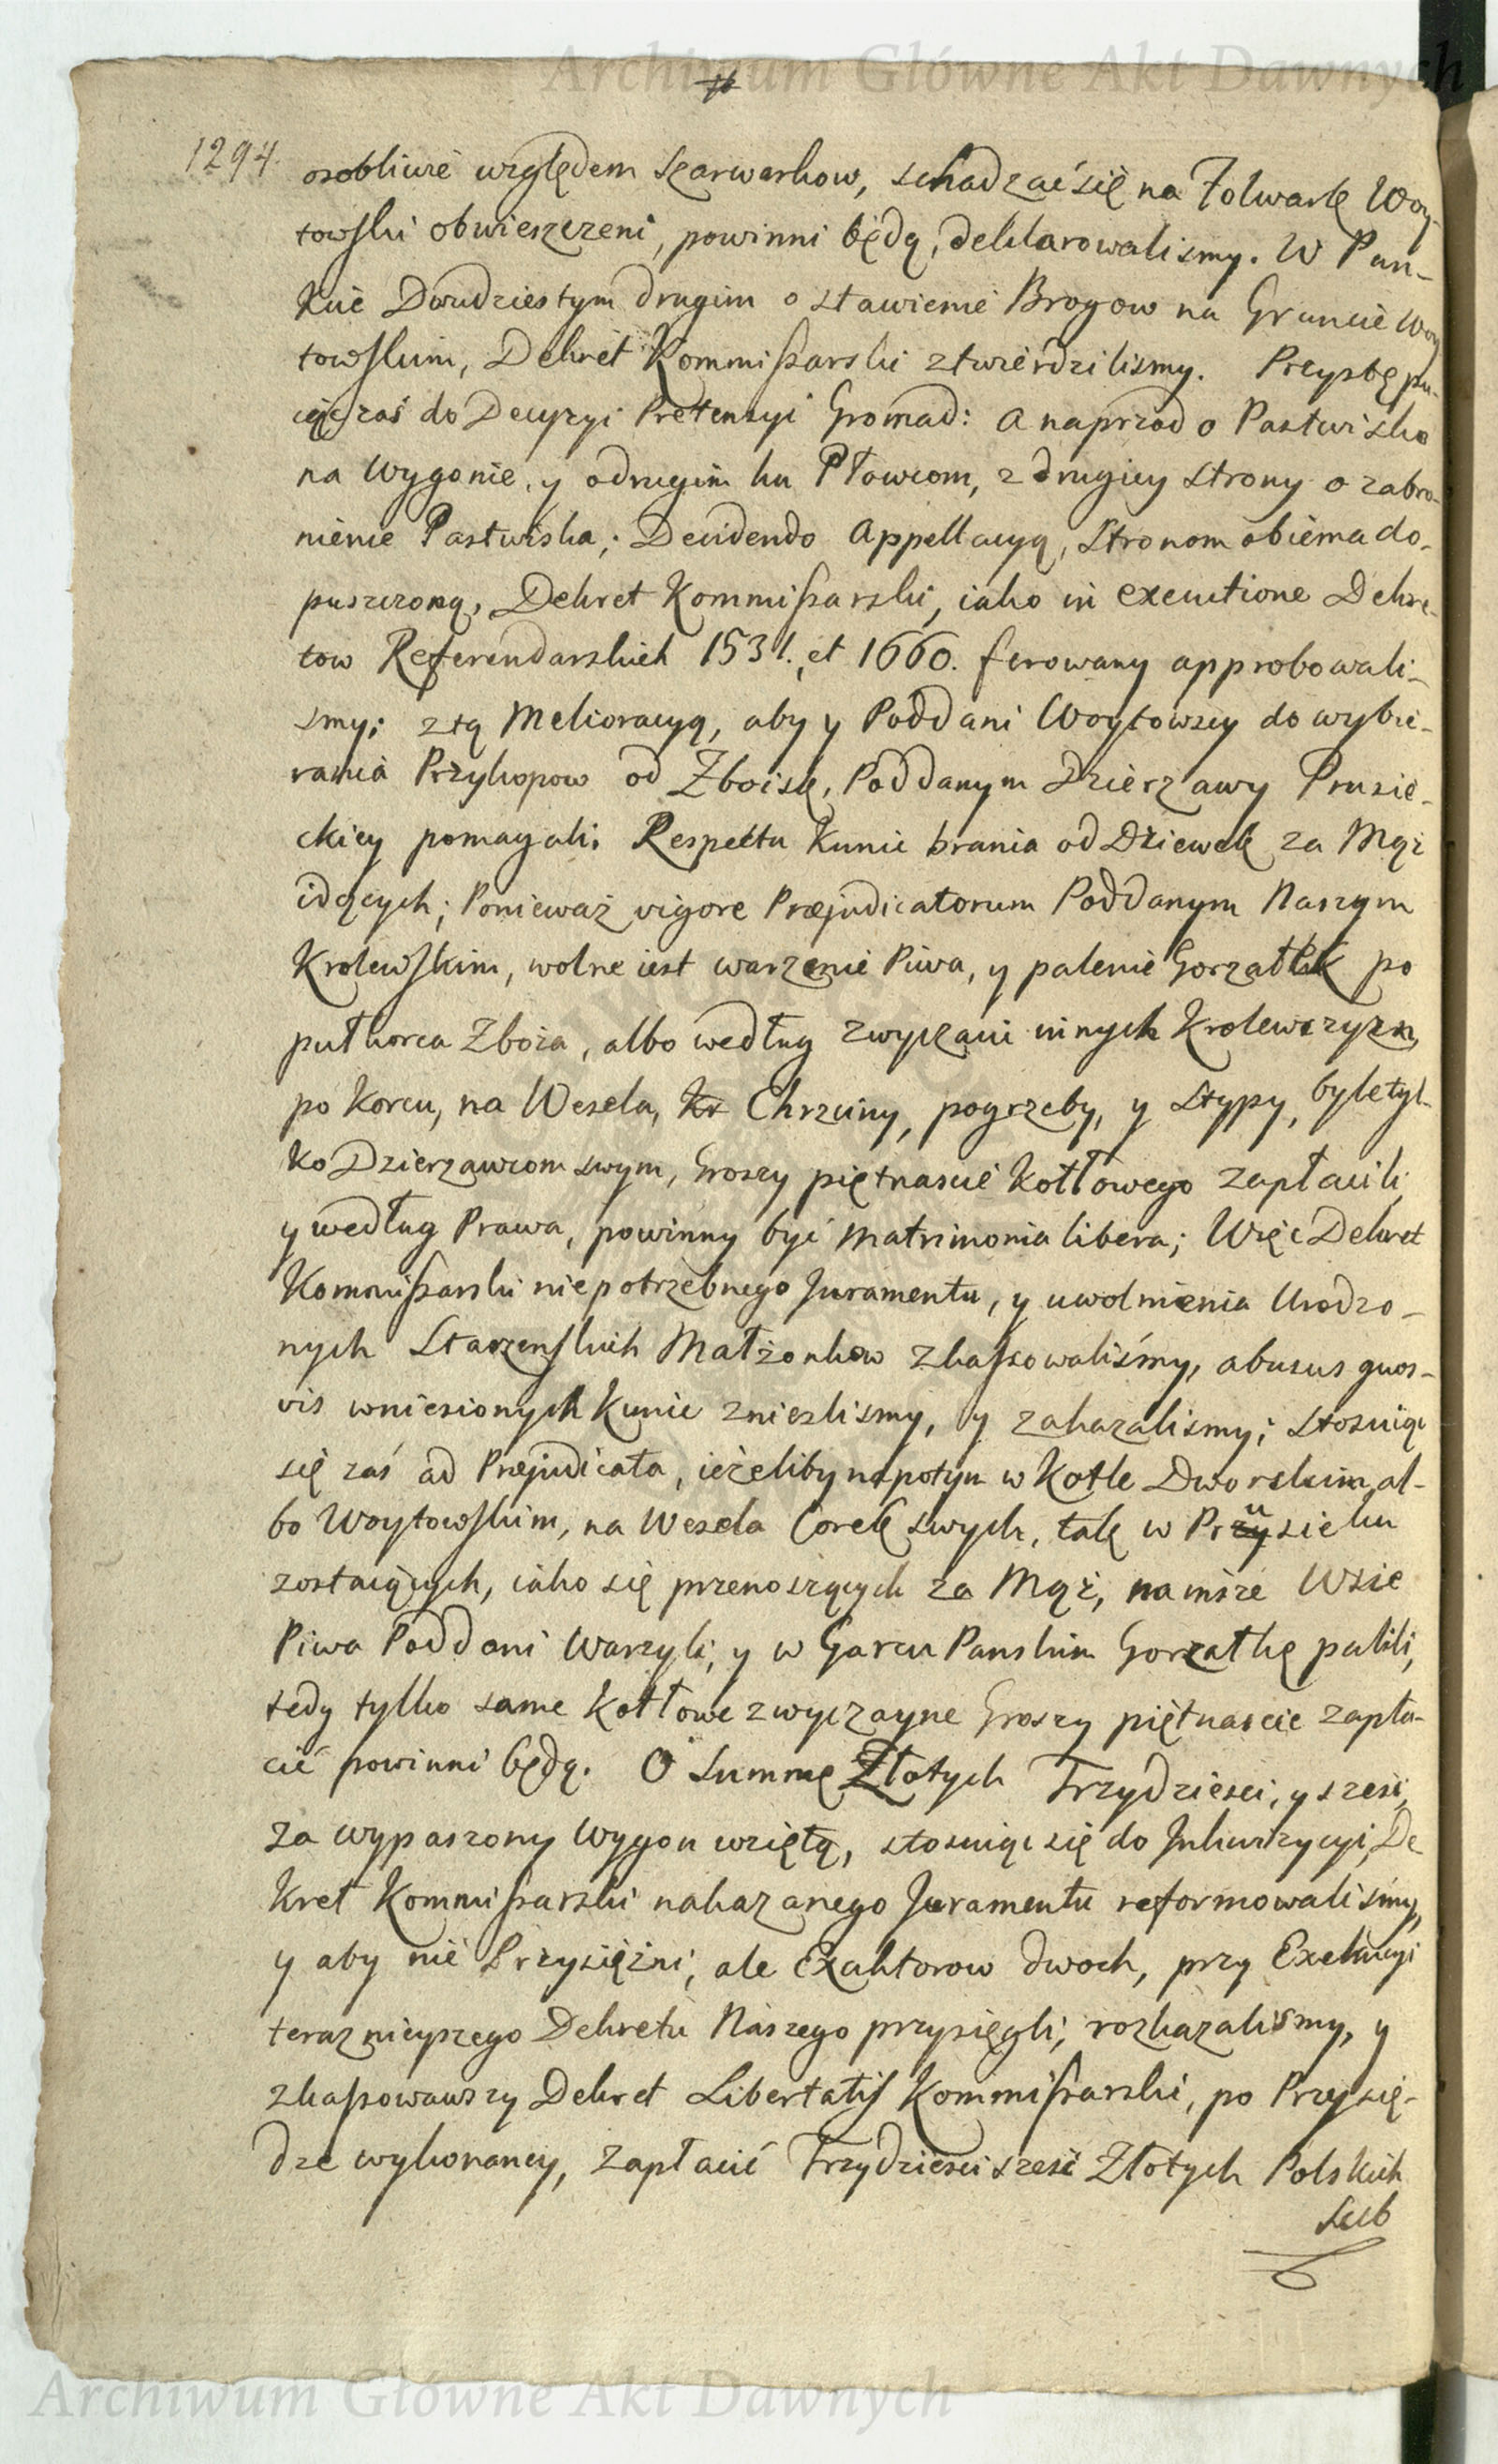 Archiwum Główne Akt Dawnych
1294.
osobliwie względem szarwarkow, schadzać się na Folwark Woy-
towski obwieszczeni, powinni będą, deklarowalismy. W Pun-
kcie Dwudziestym drugim o stawienie Brogow na Gruncie Woy
towskim, Dekret Kommissarski ztwierdzilismy. Przystępu-
iąc zaś do Decyzyi Pretensyi Gromad: a naprzod o Pastwisko
na Wygonie, y odrugim ku Pławcom, z drugiey strony o zabro-
nienie Pastwiska; Decidendo Appellacyą, Stronom obiema do-
puszczoną, Dekret Kommissarski, iako in executione Dekre-
tow Referendarskich 1531. et 1660. ferowany approbowali-
smy; ztą Melioracyą, aby y Poddani Woytowscy do wybie-
rania Przykopow od Zboisk, Poddanym Dzierzawy Prusie-
ckiey pomagali. Respektu Kunic brania od Dziewek za Mąż
idących; Ponieważ vigore Præjudicatorum Poddanym Naszym
Krolewskim, wolne iest warzenie Piwa, y palenie Gorzałek po
puł korca Zboża, albo według zwyczaiu innych Krolewszyzn,
po Korcu, na Wesela, Chrzciny, pogrzeby, y Stypy, byle tyl-
ko Dzierzawcom swym, Groszy piętnascie Kotłowego zapłacili,
y według Prawa, powinny być Matrimonia libera; Więc Dekret
Kommissarski niepotrzebnego Juramentu, y uwolnienia Urodzo-
nych Starzenskich Małżonkow zkassowaliśmy, abusus quos-
vis wniesionych Kunic zniesliśmy, y zakazalismy; Stosuiąc
się zaś ad Præjudicata, ieżeliby napotym w Kotle Dworskim, al-
bo Woytowskim, na Wesela Corek swych, tak w Prusieku
zostaiących, iako się przenoszących za Mąż, na insze Wsie
Piwa Poddani Warzyli, y w Garcu Panskim Gorzałkę palili,
tedy tylko same Kotłowe zwyczayne Groszy piętnascie zapła-
cić powinni będą. O Summę Złotych Trzydziesci, y szesć,
za wypaszony Wygon wziętą, stosuiąc się do Inkwizycyi, De
kret Kommissarski nakazanego Juramentu reformowalismy,
y aby nie Przysiężni, ale Exaktorow dwoch, przy Exekucyi
teraznieyszego Dekretu Naszego przysięgli, rozkazalismy, y
zkassowawszy Dekret Libertatis Kommissarski, po Przysię-
dze wykonaney, zapłacić Trzydziesci szesć Złotych Polskich
Sub
Archiwum Główne Akt Dawnych